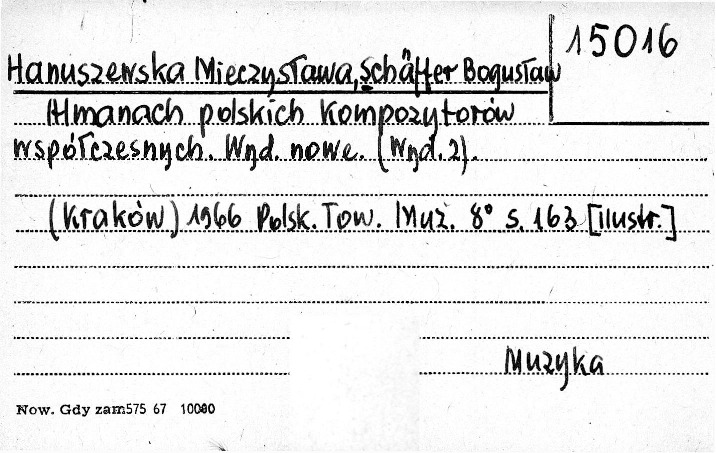 15016
Hanuszewska Mieczysława, Schäffer Bogusław
Almanach polskich kompozytorów
współczesnych. Wyd. nowe. (Wyd. 2).
(Kraków) 1966 Polsk. Tow. Muz. 8° s. 163 [ilustr.]
Muzyka
Now. Gdy zam575 67 10000